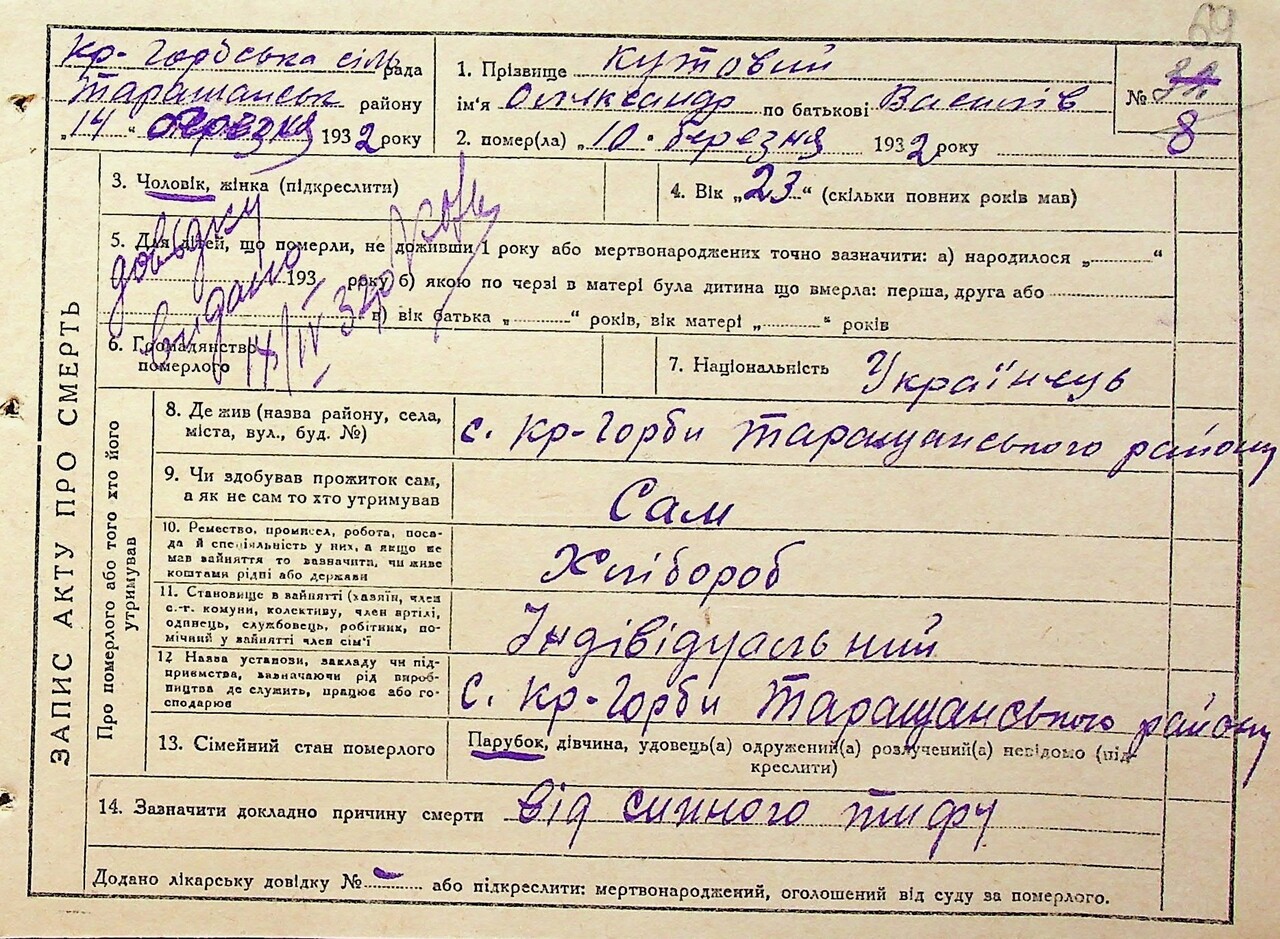 69
кр-Горбська сіль рада
Таращанськ району
„14“ березня 1932 року
1. Прізвище Кутовий
ім'я Олександр по батькові Василів
2. помер(ла) „10 - березня 1932 року
№ 8
3. Чоловік, жінка (підкреслити)
4. Вік „23“ (скільки повних років мав)
5. Для дітей, що померли, не доживши 1 року або мертвонароджених точно зазначити: а) народилося „ “
193 року б) якою по черзі в матері була дитина що вмерла: перша, друга або
в) вік батька „ “ років, вік матері „ “ років
довідку
видано
14/IV 32р
6. Громадянство
померлого
7. Національність Українець
ЗАПИС АКТУ ПРО СМЕРТЬ
Про померлого або того хто його
утримував
8. Де жив (назва району, села,
міста, вул., буд. №)
с. кр-Горби Таращанського району
9. Чи здобував прожиток сам,
а як не сам то хто утримував
Сам
10. Ремество, промисел, робота, поса-
да й спеціяльність у них, а якщо не
мав зайняття то зазначити, чи живе
коштами рідні або держави
Хлібороб
11. Становище в зайнятті (хазяїн, член
с.-г. комуни, колективу, член артілі,
одинець, службовець, робітник, по-
мічний у зайнятті член сім'ї
Індівідуальний
12 Назва установи, закладу чи під-
приємства, зазначаючи рід вироб-
ництва де служить, працює або го-
сподарює
с. кр-Горби Таращанського району
13. Сімейний стан померлого
Парубок, дівчина, удовець(а) одружений(а) розлучений(а) невідомо (під-
креслити)
14. Зазначити докладно причину смерти від сипного тифу
Додано лікарську довідку № - або підкреслити: мертвонароджений, оголошений від суду за померлого.